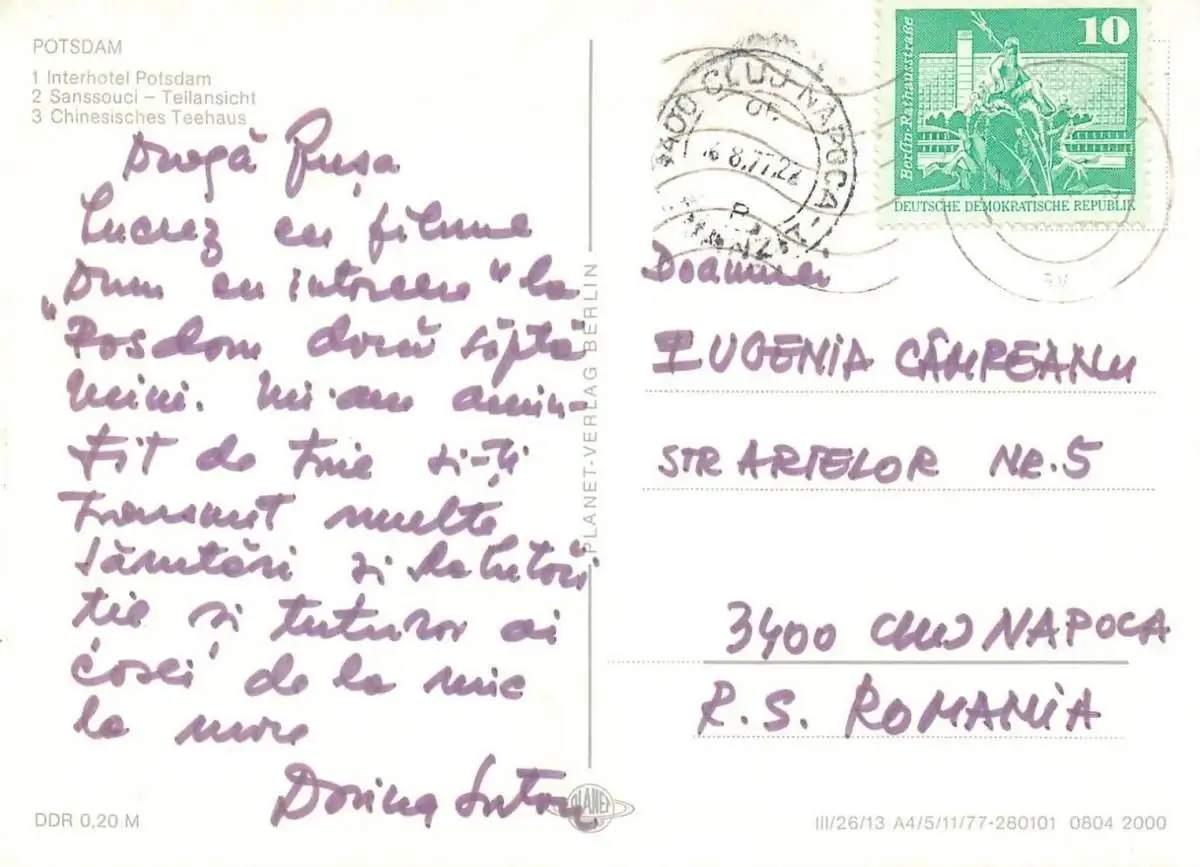 POTSDAM
1 Interhotel Potsdam
2 Sanssouci – Teilansicht
3 Chinesisches Teehaus
Dragă Pușa
Lucrez cu filme
„Drum cu intorcere“ la
Posdam două săptă
mini. Mi-am amin-
tit de tine si-ți
transmit multe
sărutări si salutări
tie si tuturor ai
casei de la mic
la mare
Dorina
PLANET-VERLAG BERLIN
DDR 0,20 M
PLANET
3400 CLUJ-NAPOCA
8.77.22
10
Berlin-Rathausstraße
DEUTSCHE DEMOKRATISCHE REPUBLIK
Doamnei
EUGENIA CÂMPEANU
STR ARTELOR NR. 5
3400 CLUJ NAPOCA
R. S. ROMANIA
III/26/13 A4/5/11/77-280101 0804 2000